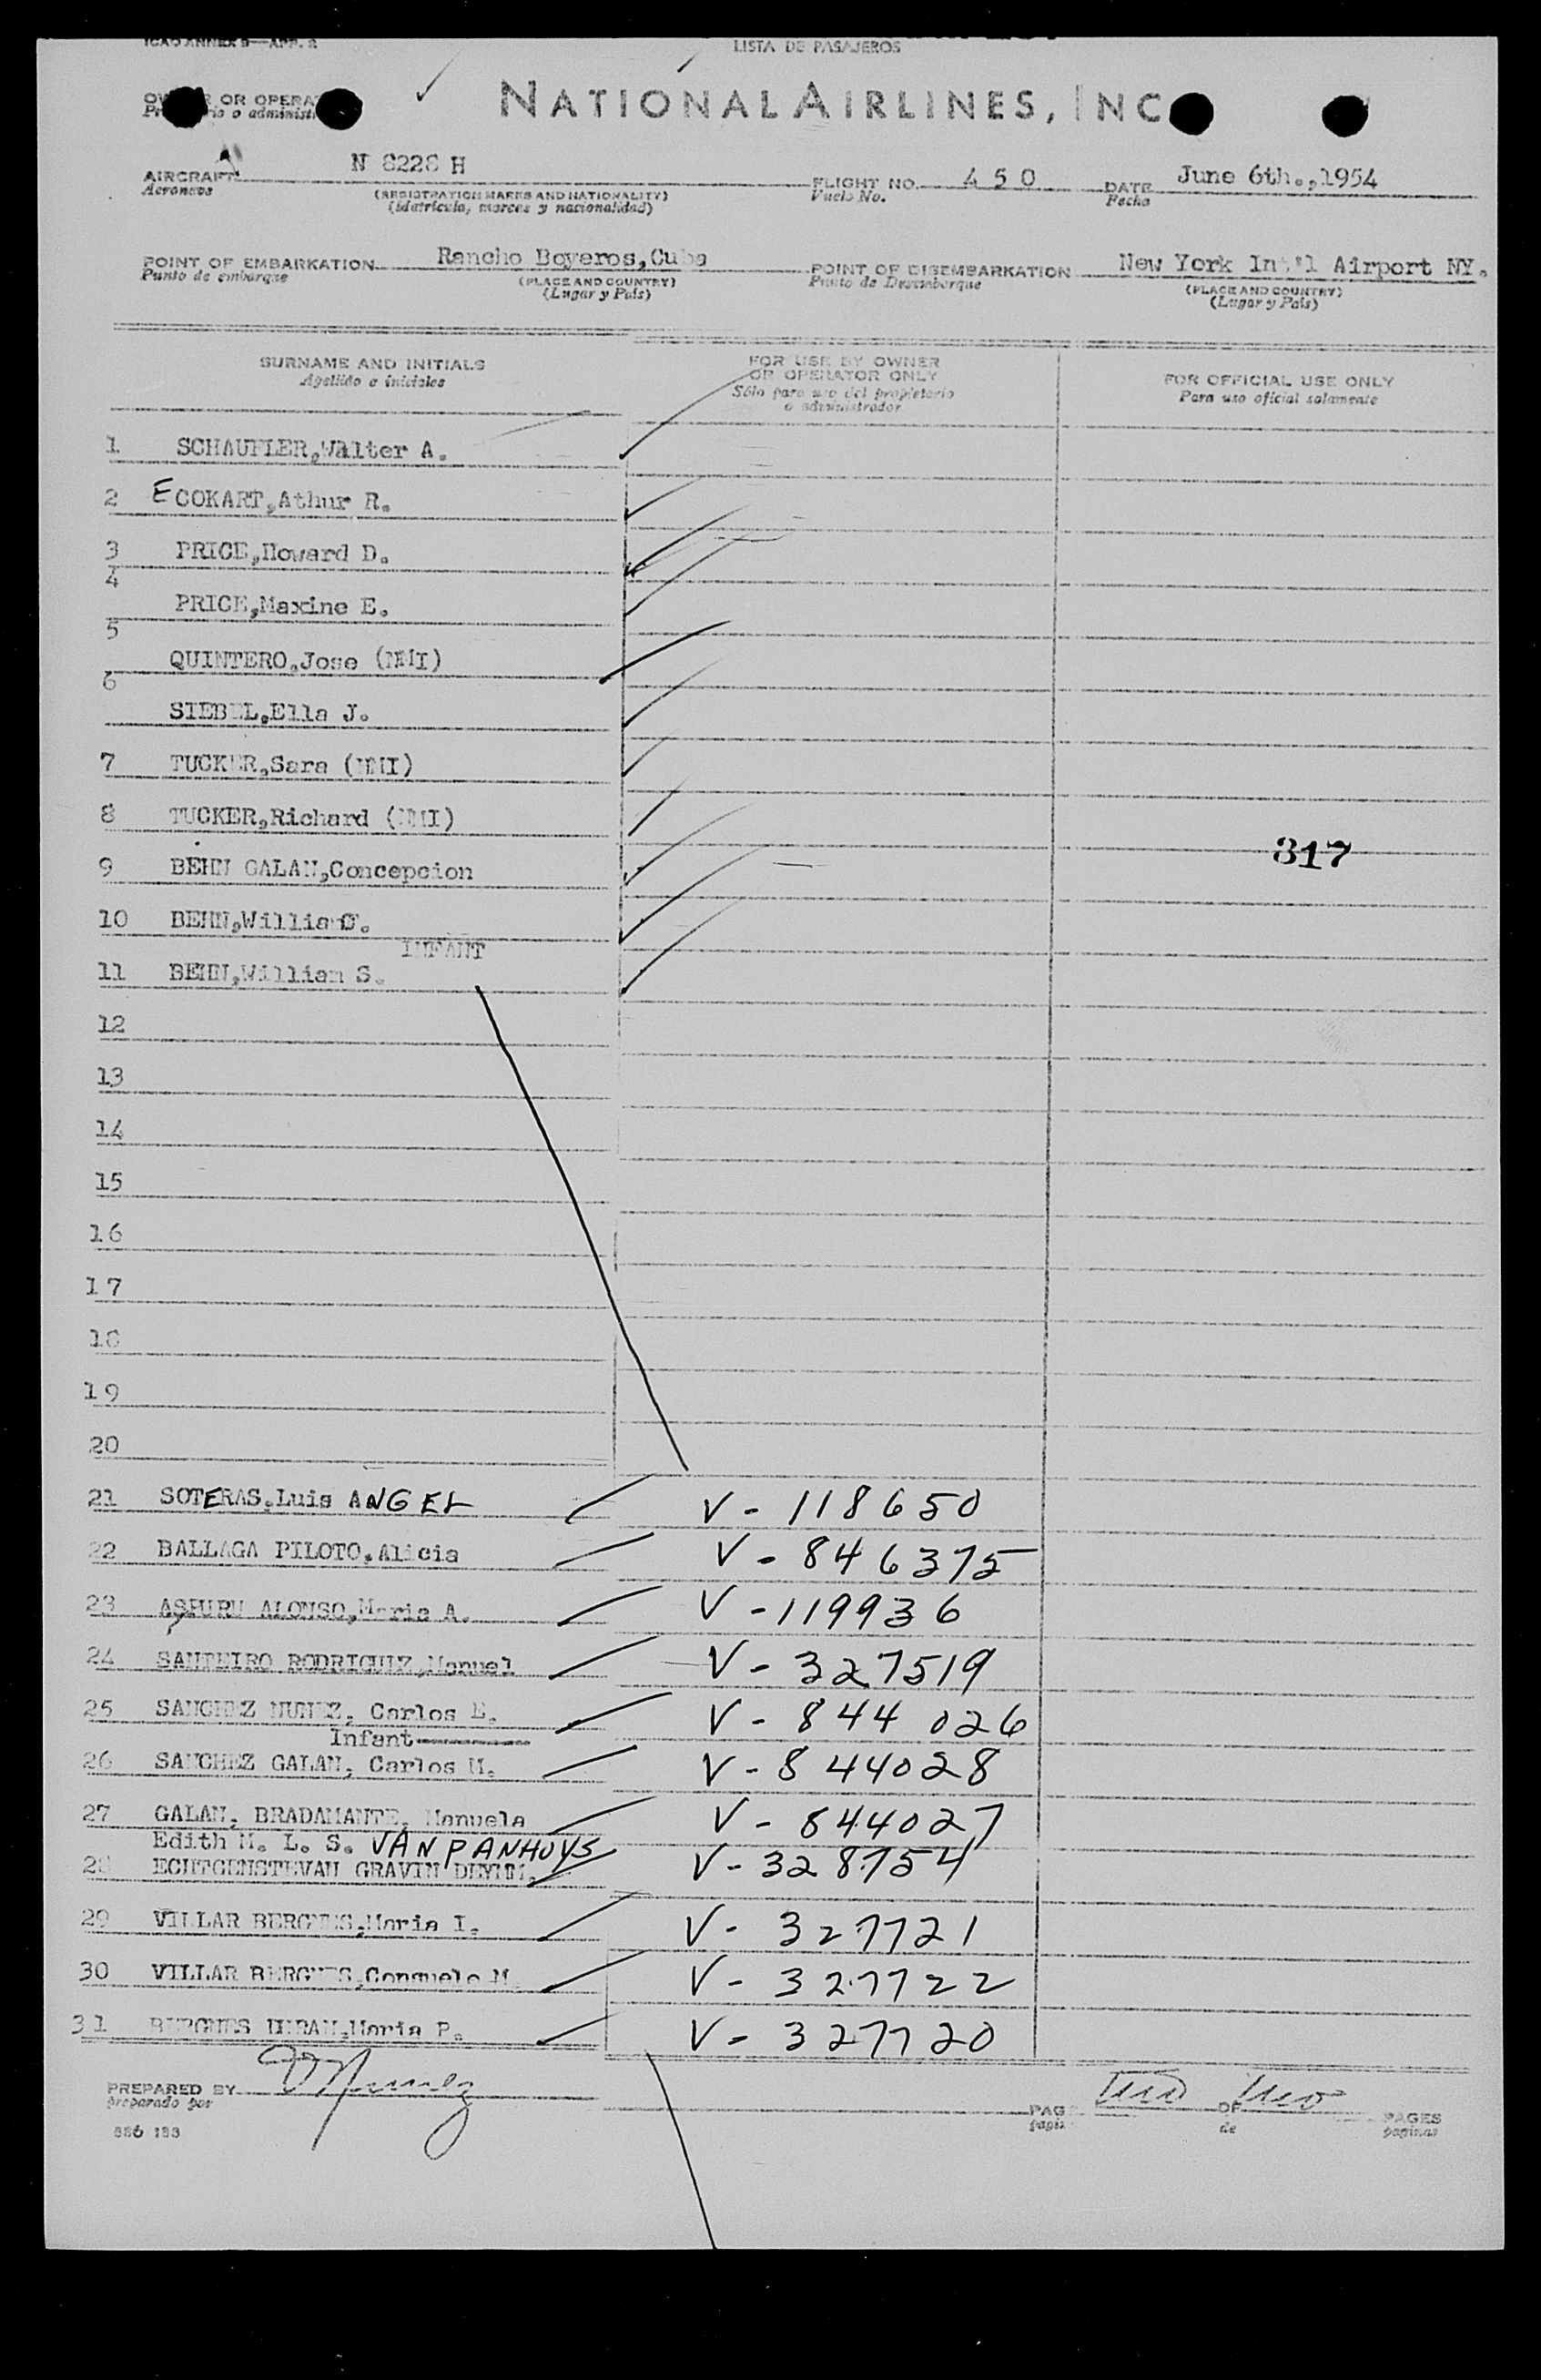 ICAO ANNEX 9—APP. 2
LISTA DE PASAJEROS
OR OPERA
o administ
NATIONAL AIRLINES, INC
AIRCRAFT N 8228 H FLIGHT NO. 4 5 0 DATE June 6th.,1954
Aeronave (REGISTRATION MARKS AND NATIONALITY) Vuelo No. Fecha
(Matricula, marcas y nacionalidad)
POINT OF EMBARKATION Rancho Boyeros,Cuba POINT OF DISEMBARKATION New York Int'l Airport NY.
Punto de embarque (PLACE AND COUNTRY) Punto de Desembarque (PLACE AND COUNTRY)
(Lugar y País) (Lugar y País)
SURNAME AND INITIALS FOR USE BY OWNER OR OPERATOR ONLY FOR OFFICIAL USE ONLY
Apellido e iniciales Sólo para uso del propietario o administrador Para uso oficial solamente
1 SCHAUFLER,Walter A.
2 ECOKART,Athur R.
3 PRICE,Howard D.
4
PRICE,Maxine E.
5
QUINTERO,Jose (NMI)
6
SIEBEL,Ella J.
7 TUCKER,Sara (NMI)
8 TUCKER,Richard (NMI)
317
9 BEHN GALAN,Concepcion
10 BEHN,William
INFANT
11 BEHN,William S.
12
13
14
15
16
17
18
19
20
21 SOTERAS,Luis ANGEL V - 118650
22 BALLAGA PILOTO,Alicia V - 846375
23 ASPURU ALONSO,Maria A. V - 119936
24 SANTEIRO RODRIGUEZ,Manuel V - 327519
25 SANCHEZ NUNEZ, Carlos E. V - 844 026
Infant
26 SANCHEZ GALAN, Carlos M. V - 844028
27 GALAN, BRADAMANTE, Manuela V - 844027
Edith M. L. S. VAN PANHUYS
28 ECHTGENSTEVAN GRAVIN DEYMM. V - 328754
29 VILLAR BERGNES,Maria I. V - 327721
30 VILLAR BERGNES,Consuelo M. V - 327722
31 BERGNES DURAN,Maria P. V - 327720
PREPARED BY PAG OF two PAGES
preparado por pagi de paginas
886 183